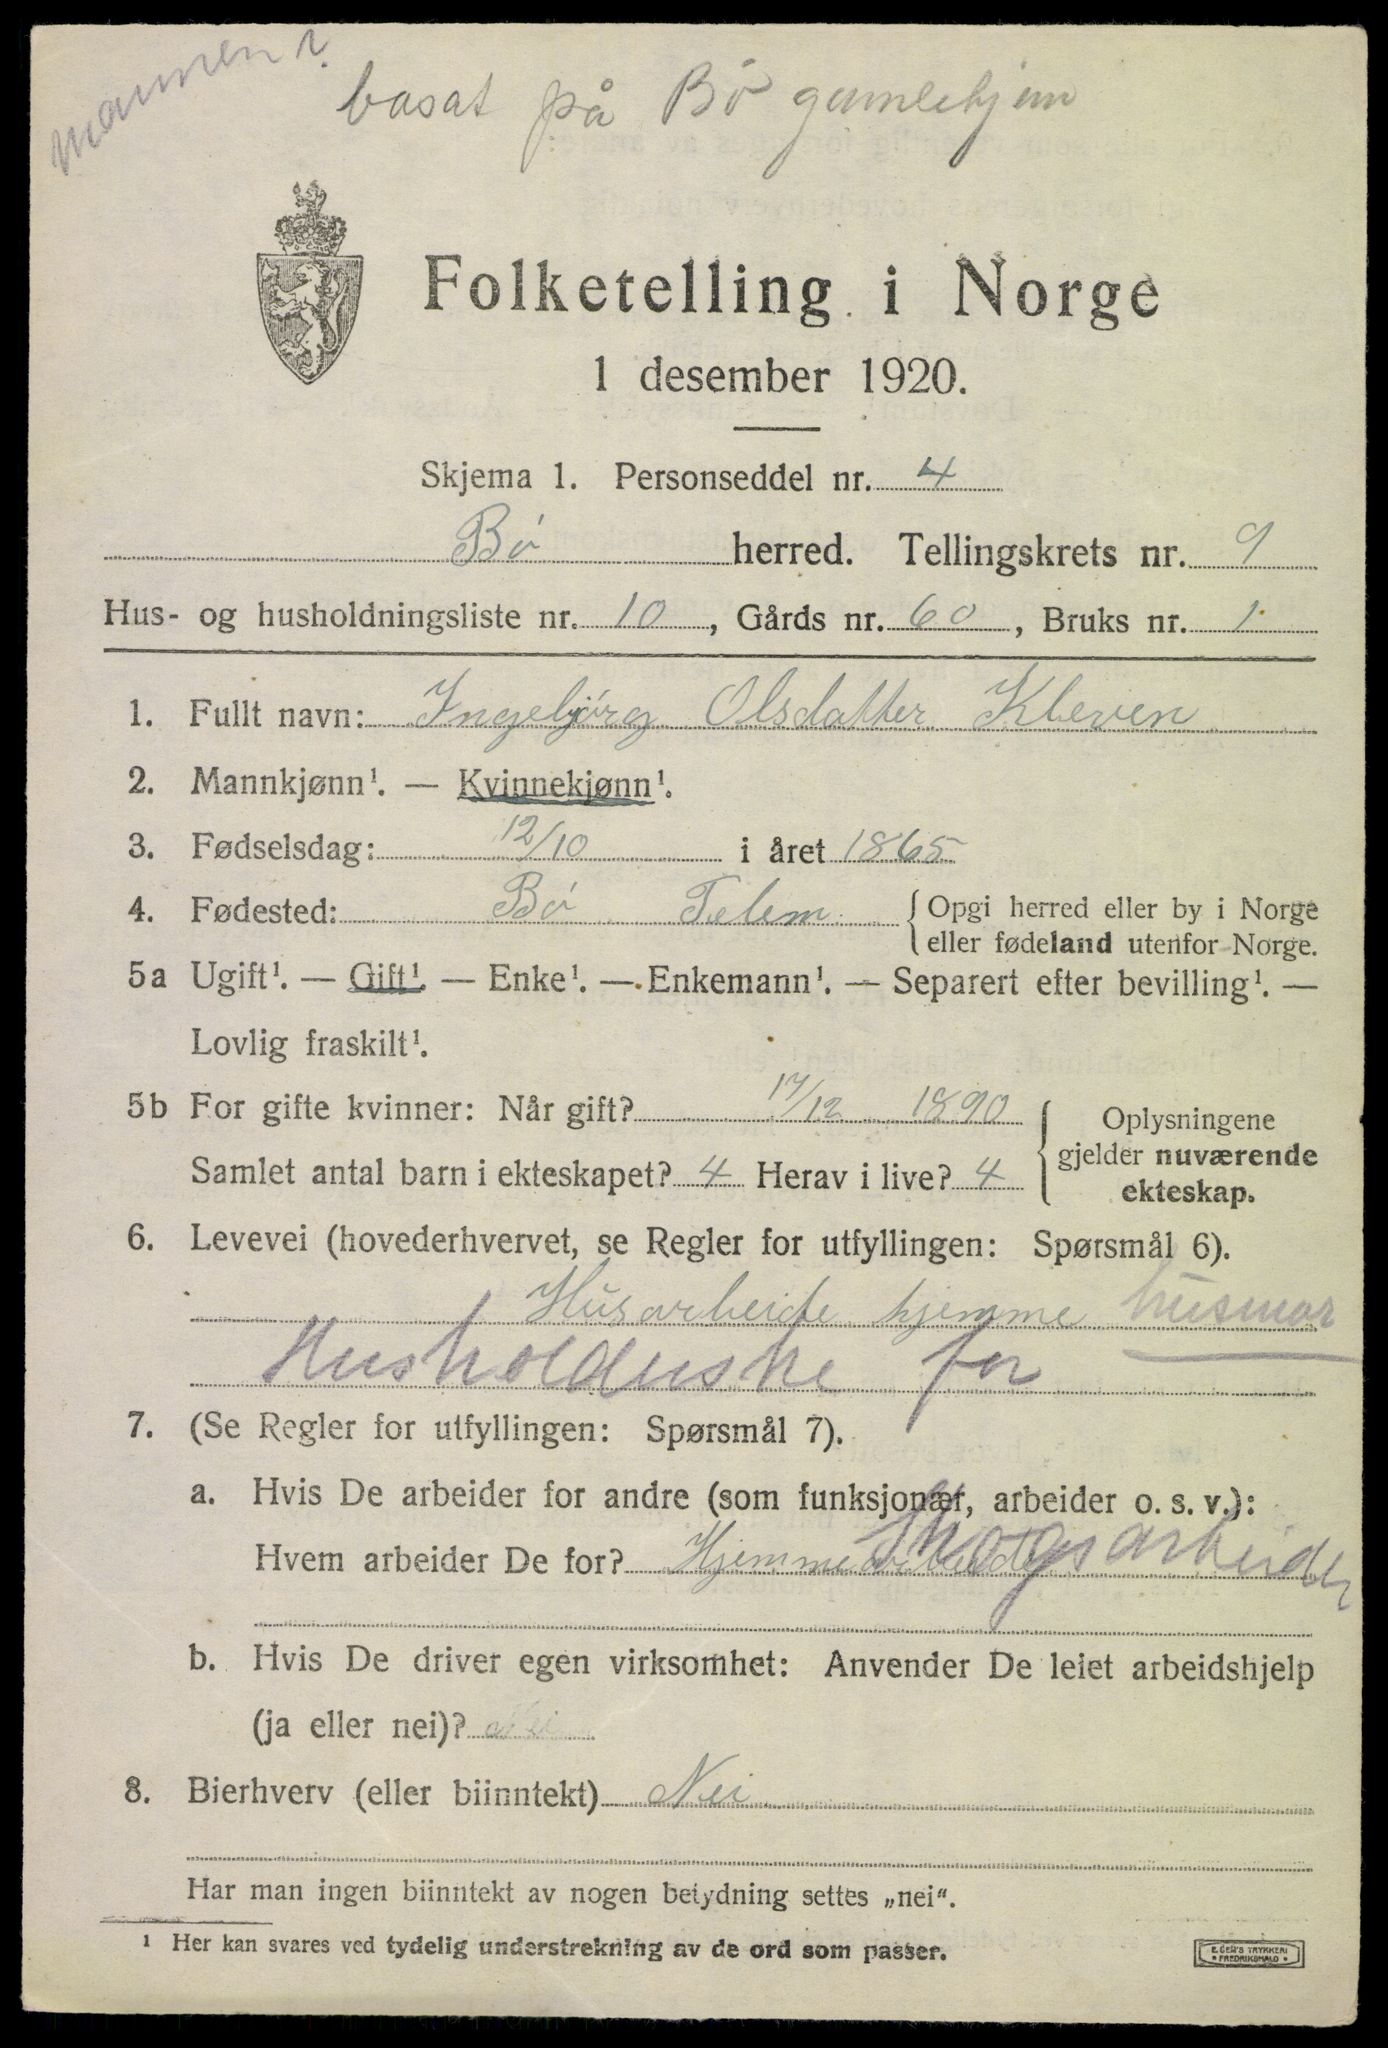 mannen?
bosat på Bø gamlehjem
Folketelling i Norge
1 desember 1920.
Skjema 1. Personseddel nr. 4
Bø herred. Tellingskrets nr. 9
Hus- og husholdningsliste nr. 10, Gårds nr. 60, Bruks nr. 1
1. Fullt navn: Ingebjørg Olsdatter Kleven
2. Mannkjønn¹. — Kvinnekjønn¹.
3. Fødselsdag: 12/10 i året 1865
4. Fødested: Bø Telem. { Opgi herred eller by i Norge
eller fødeland utenfor Norge.
5a Ugift¹. — Gift¹. — Enke¹. — Enkemann¹. — Separert efter bevilling¹. —
Lovlig fraskilt¹.
5b For gifte kvinner: Når gift? 17/12 1890 { Oplysningene
Samlet antal barn i ekteskapet? 4 Herav i live? 4 gjelder nuværende
ekteskap.
6. Levevei (hovederhvervet, se Regler for utfyllingen: Spørsmål 6).
Husarbeide hjemme husmor
Husholderske for
7. (Se Regler for utfyllingen: Spørsmål 7).
a. Hvis De arbeider for andre (som funksjonær, arbeider o. s. v.):
Hvem arbeider De for? Hjemmearbeide Skogsarbeider
b. Hvis De driver egen virksomhet: Anvender De leiet arbeidshjelp
(ja eller nei)? Nei
8. Bierhverv (eller biinntekt) Nei
Har man ingen biinntekt av nogen betydning settes „nei“.
¹ Her kan svares ved tydelig understrekning av de ord som passer.
E. GER'S TRYKKERI
FREDRIKSHALD